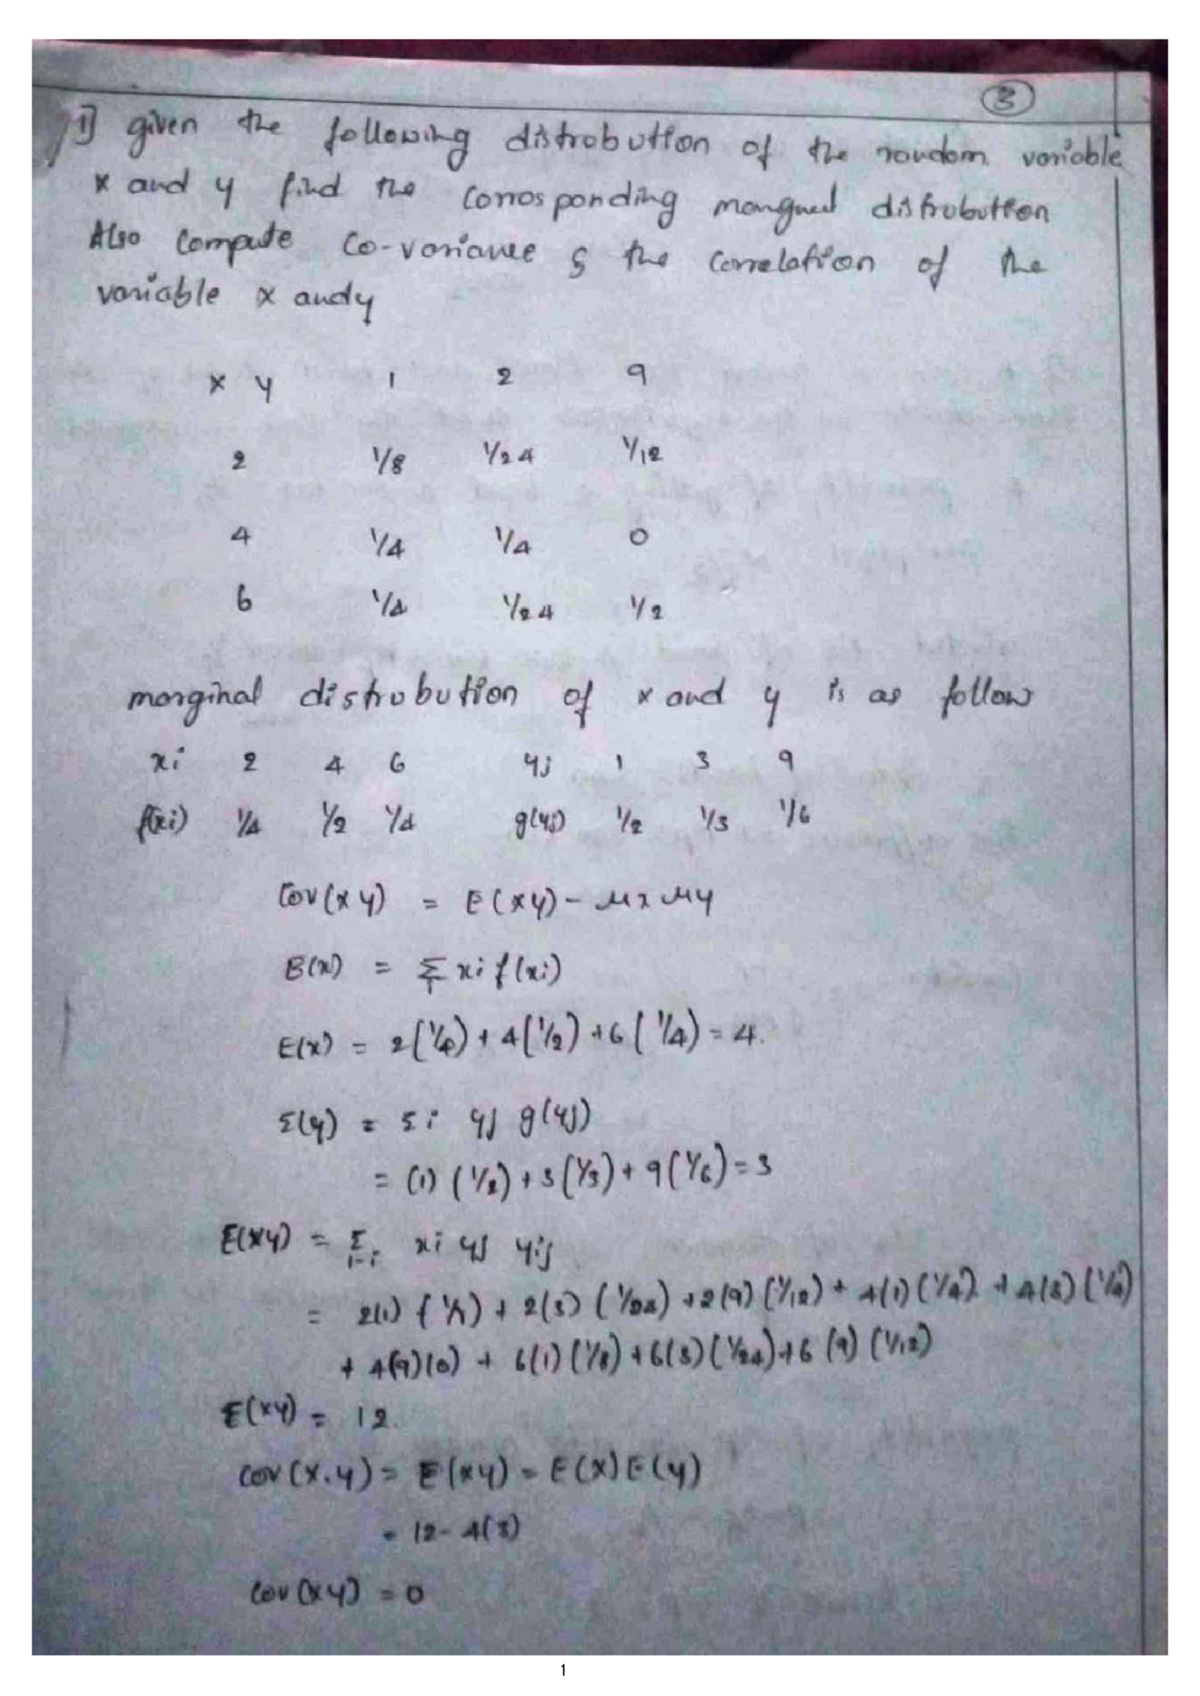 3
1] given the following distrobution of the random variable
x and y find the corrosponding mangued distrobution
Also compute co-variance & the correlation of the
variable x and y
x y 1 2 9
2 1/8 1/24 1/12
4 1/4 1/4 0
6 1/4 1/24 1/2
marginal distrobution of x and y is as follow
xi 2 4 6 yj 1 3 9
f(xi) 1/4 1/2 1/4 g(yj) 1/2 1/3 1/6
Cov(xy) = E(xy) - μx μy
E(x) = Σi xi f(xi)
E(x) = 2(1/4) + 4(1/2) + 6(1/4) = 4.
Σ(y) = Σi yj g(yj)
= (1) (1/2) + 3(1/3) + 9(1/6) = 3
E(xy) = Σ xi yj yij
= 2(1) (1/8) + 2(3) (1/24) + 2(9) (1/12) + 4(1) (1/4) + 4(3) (1/4)
+ 4(9)(0) + 6(1)(1/8) + 6(3)(1/24) + 6 (9) (1/12)
E(xy) = 12.
cov(x.y) = E(xy) - E(x)E(y)
= 12 - 4(3)
Cov(xy) = 0
1